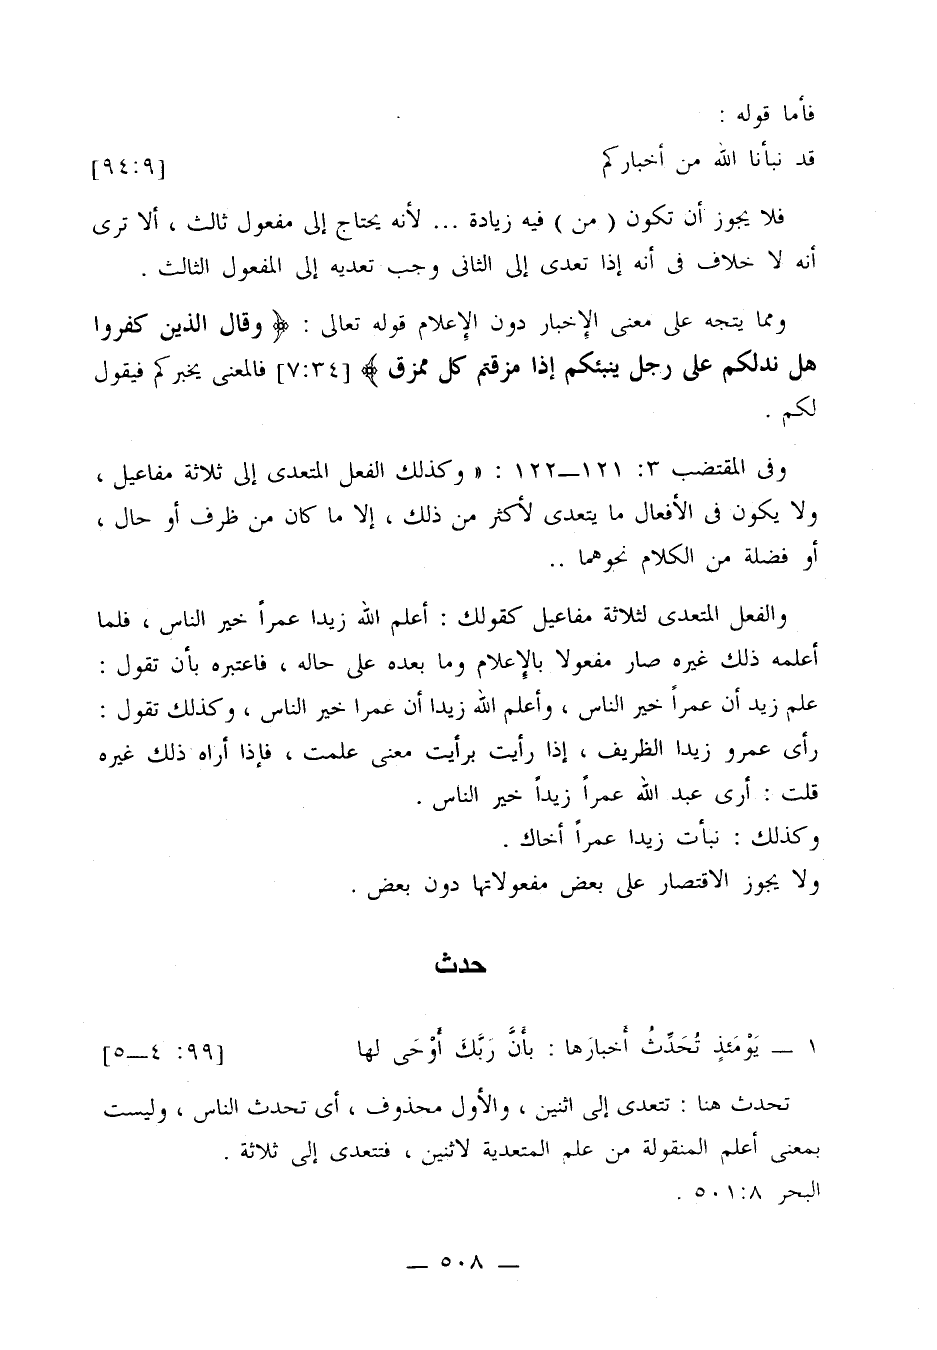 فأما قوله :
قد نبأنا الله من أخباركم [٩٤:٩]
فلا يجوز أن تكون ( من ) فيه زيادة ... لأنه يحتاج إلى مفعول ثالث ، ألا ترى
أنه لا خلاف فى أنه إذا تعدى إلى الثانى وجب تعديه إلى المفعول الثالث .
ومما يتجه على معنى الإخبار دون الإعلام قوله تعالى : ﴿ وقال الذين كفروا
هل ندلكم على رجل ينبئكم إذا مزقتم كل ممزق ﴾ [٧:٣٤] فالمعنى يخبركم فيقول
لكم .
وفى المقتضب ٣: ١٢١ــ١٢٢ : « وكذلك الفعل المتعدى إلى ثلاثة مفاعيل ،
ولا يكون فى الأفعال ما يتعدى لأكثر من ذلك ، إلا ما كان من ظرف أو حال ،
أو فضلة من الكلام نحوهما ..
والفعل المتعدى لثلاثة مفاعيل كقولك : أعلم الله زيدا عمراً خير الناس ، فلما
أعلمه ذلك غيره صار مفعولا بالإعلام وما بعده على حاله ، فاعتبره بأن تقول :
علم زيد أن عمراً خير الناس ، وأعلم الله زيدا أن عمرا خير الناس ، وكذلك تقول :
رأى عمرو زيدا الظريف ، إذا رأيت برأيت معنى علمت ، فإذا أراه ذلك غيره
قلت : أرى عبد الله عمراً زيداً خير الناس .
وكذلك : نبأت زيدا عمراً أخاك .
ولا يجوز الاقتصار على بعض مفعولاتها دون بعض .
حدث
١ ــ يَوْمَئذٍ تُحَدِّثُ أَخبارَها : بأَنَّ رَبَّكَ أَوْحَى لها [٩٩: ٤ــ٥]
تحدث هنا : تتعدى إلى اثنين ، والأول محذوف ، أى تحدث الناس ، وليست
بمعنى أعلم المنقولة من علم المتعدية لاثنين ، فتتعدى إلى ثلاثة .
البحر ٥٠١:٨ .
ــ ٥٠٨ ــ